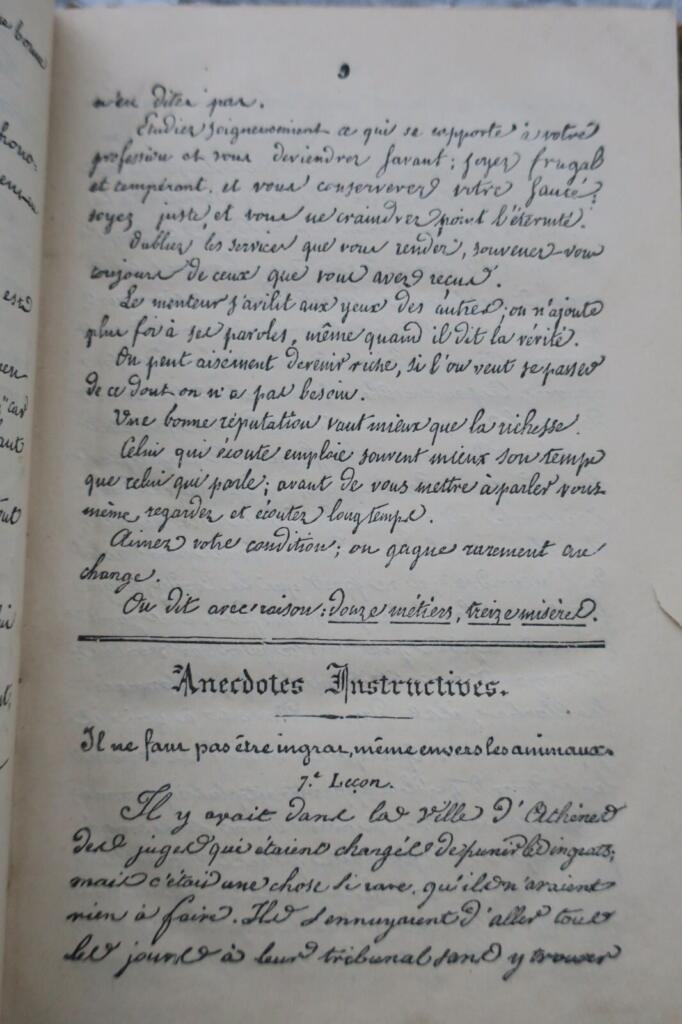 9
n'en dites pas.
Etudiez soigneusement ce qui se rapporte à votre
profession et vous deviendrez savant; soyez frugal
et tempérant, et vous conserverez votre santé;
soyez juste, et vous ne craindrez point l'éternité.
Oubliez les services que vous rendez, souvenez-vous
toujours de ceux que vous avez reçus.
Le menteur s'avilit aux yeux des autres; on n'ajoute
plus foi à ses paroles, même quand il dit la vérité.
On peut aisément devenir riche, si l'on veut se passer
de ce dont on n'a pas besoin.
Une bonne réputation vaut mieux que la richesse.
Celui qui écoute emploie souvent mieux son temps
que celui qui parle; avant de vous mettre à parler vous-
même, regardez et écoutez longtemps.
Aimez votre condition; on gagne rarement au
change.
On dit avec raison: douze métiers, treize misères.
Anecdotes Instructives.
Il ne faut pas être ingrat, même envers les animaux.
7.e Leçon.
Il y avait dans la ville d'Athènes
des juges qui étaient chargés de punir les ingrats;
mais c'était une chose si rare, qu'ils n'avaient
rien à faire. Ils s'ennuyaient d'aller tous
les jours à leur tribunal sans y trouver